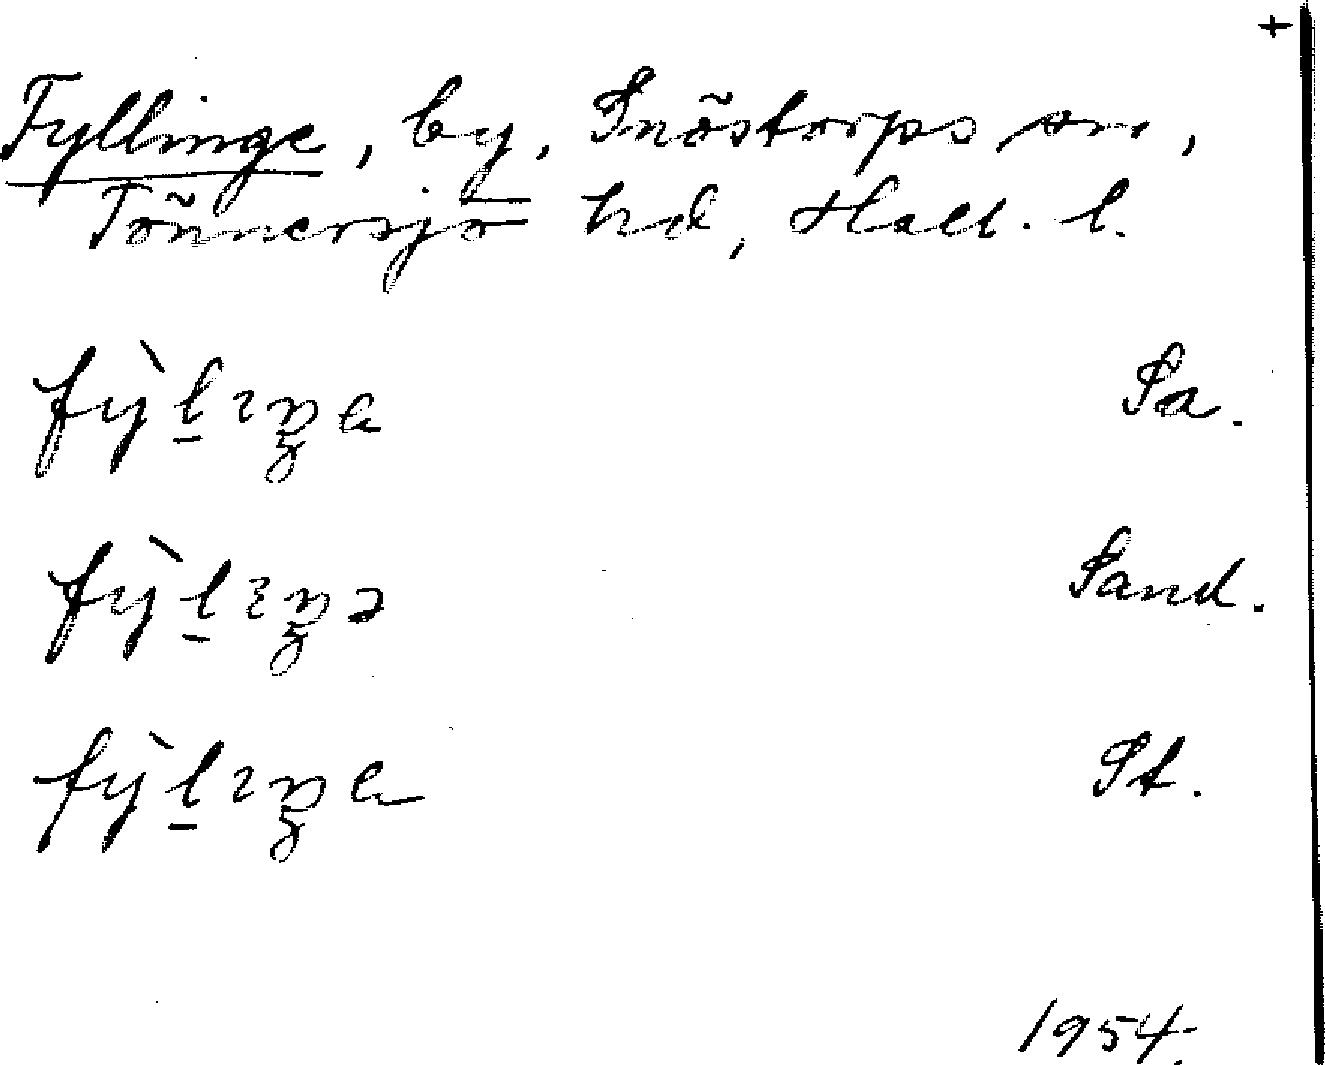 +
Fyllinge, by, Snöstorps sn,
Tönnersjö hd, Hall. l.
fỳl̠ıŋa Sa.
fỳl̠ıŋə Sand.
fỳl̠ıŋa St.
1954.